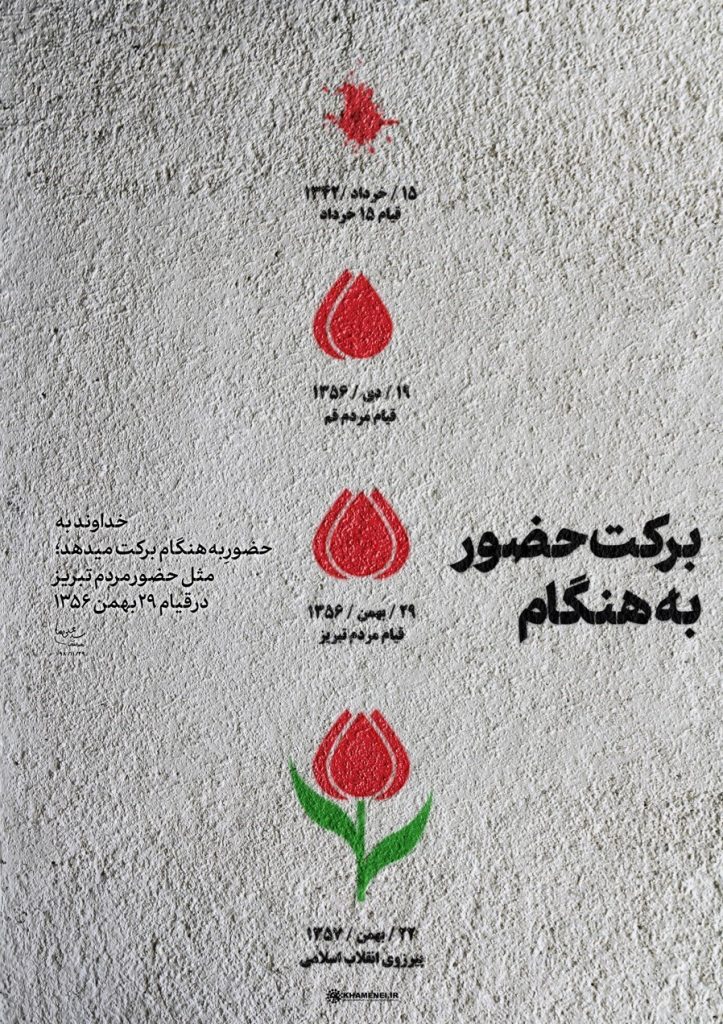 ۱۵ / خرداد / ۱۳۴۲
قیام ۱۵ خرداد
۱۹ / دی / ۱۳۵۶
قیام مردم قم
برکت حضور
به هنگام
خداوند به
حضور به هنگام برکت میدهد؛
مثل حضور مردم تبریز
در قیام ۲۹ بهمن ۱۳۵۶
۲۹ / بهمن / ۱۳۵۶
قیام مردم تبریز
۲۲ / بهمن / ۱۳۵۷
پیروزی انقلاب اسلامی
KHAMENEI.IR